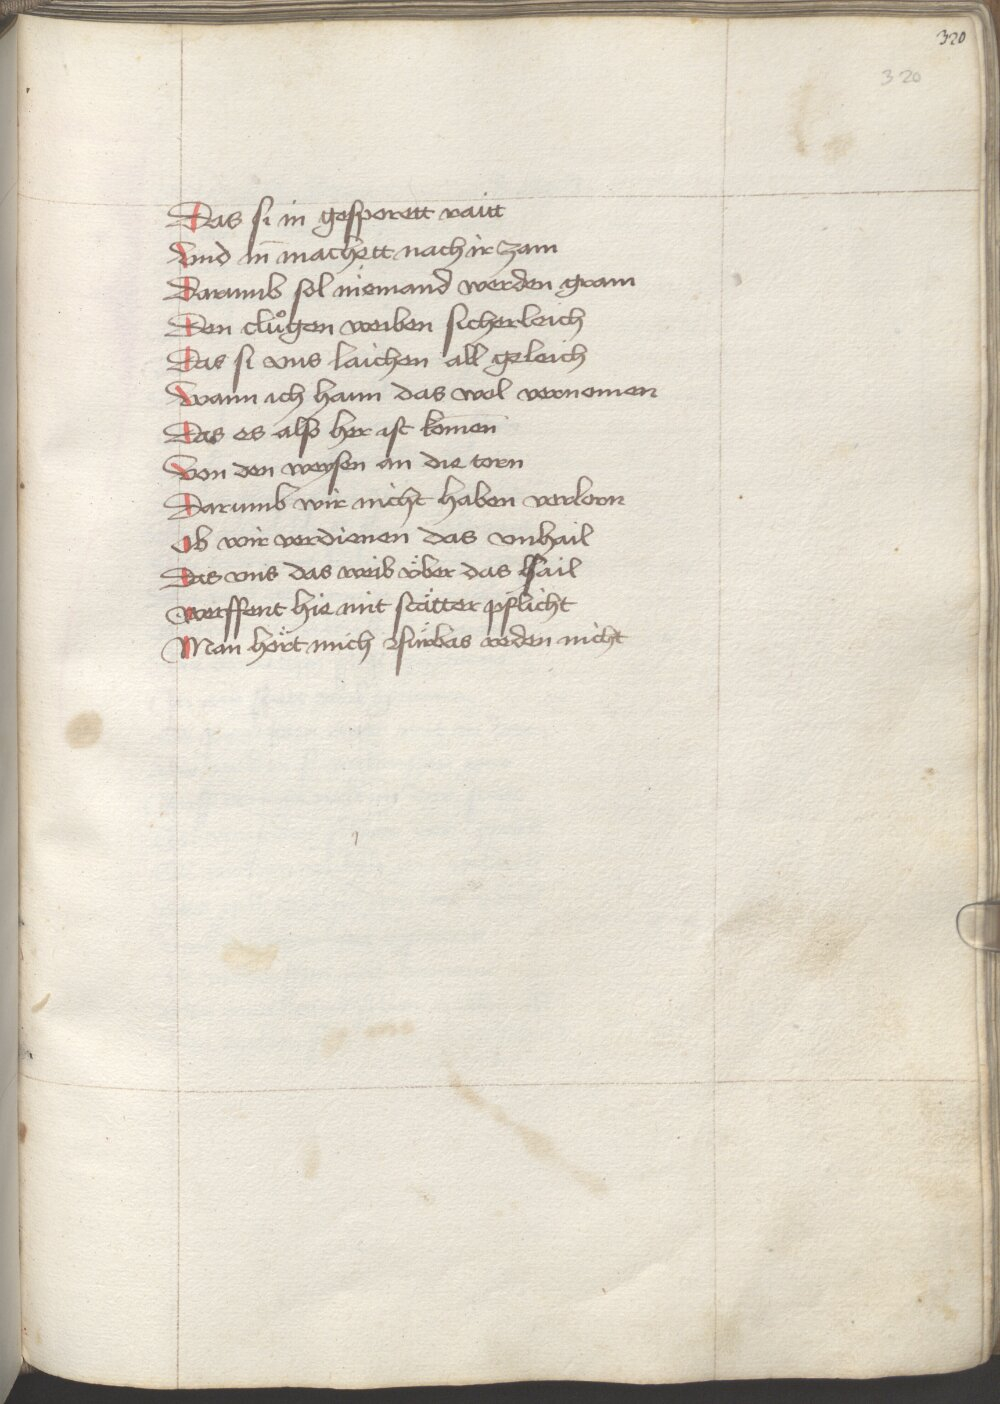 320
320
Das si in gesporett raitt
Vnd in̄ machett nach ir zam
Darumb sol niemand werden gram
Den clůgen weiben sicherleich
Das si vns laichen all geleich
Wann ich hann das wol vernemen
Das es also her ist komen̄
Von den weysen an die torn
Darumb wir nicht haben verlorn
Ob wir verdienen das vnhail
Das vns das weib v̈ber das hail
Werffent hie mit stätter pflicht
Man hört mich fürbas reden nicht